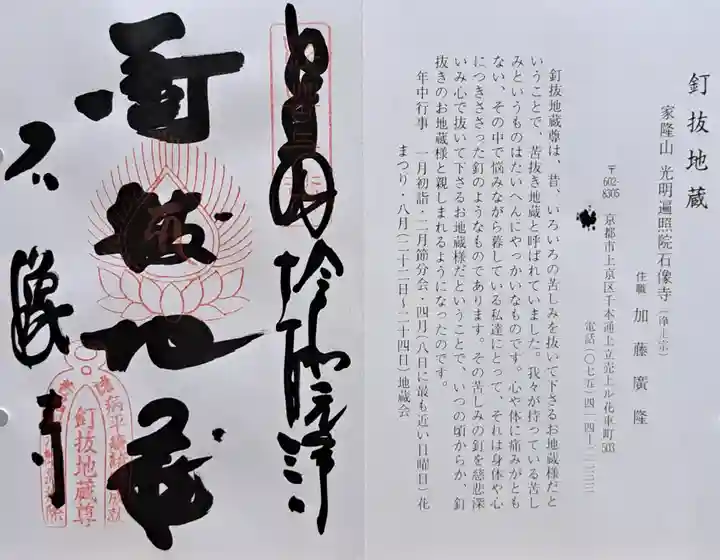 釘抜地蔵
石像寺
釘抜地蔵尊
釘抜地蔵
家隆山 光明遍照院石像寺(浄土宗)
住職 加藤廣隆
〒602-8305 京都市上京区千本通上立売上ル花車町503
電話(〇七五)四一四-二二三三
釘抜地蔵尊は、昔、いろいろの苦しみを抜いて下さるお地蔵様だと
いうことで、苦抜き地蔵と呼ばれていました。我々が持っている苦し
みというものはたいへんにやっかいなものです。心や体に痛みがとも
ない、その中で悩みながら暮している私達にとって、それは身体や心
につきささった釘のようなものであります。その苦しみの釘を慈悲深
いみ心で抜いて下さるお地蔵様だということで、いつの頃からか、釘
抜きのお地蔵様と親しまれるようになったのです。
年中行事 一月初詣・二月節分会・四月(八日に最も近い日曜日)花
まつり・八月(二十二日〜二十四日)地蔵会